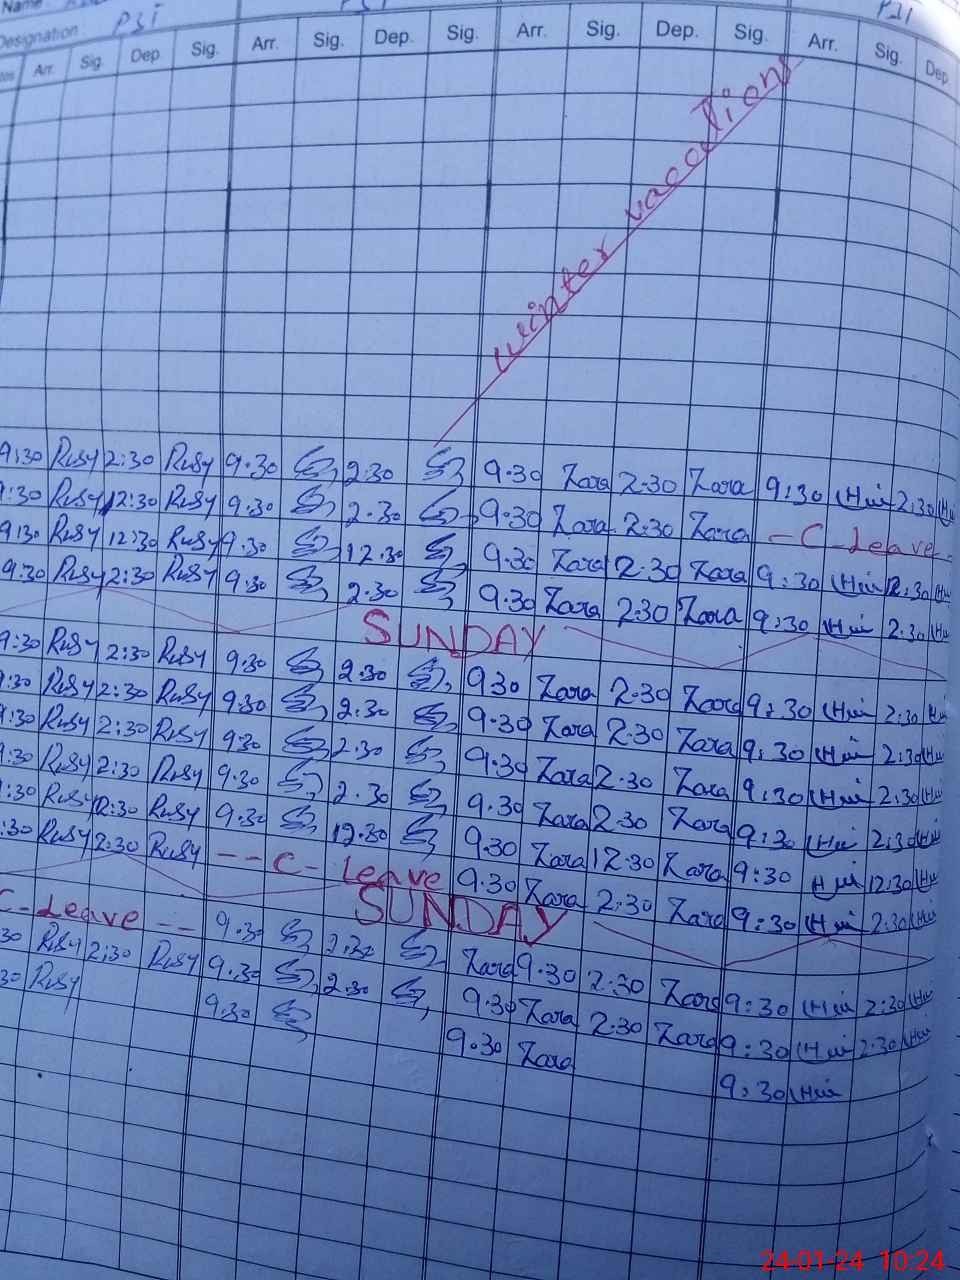 Name
PST
PST
Designation: PST
Arr. Sig. Dep. Sig. Arr. Sig. Dep. Sig. Arr. Sig. Dep. Sig. Arr. Sig. Dep
winter vacations
9:30 Rusy 2:30 Rusy 9.30 2.30 9.30 Zara 2.30 Zara 9:30 Hui 2:30 Hui
9:30 Rusy 2:30 Rusy 9.30 2.30 9.30 Zara 2.30 Zara - C - Leave -
9:30 Rusy 12:30 Rusy 9.30 12.30 9.30 Zara 2.30 Zara 9:30 Hui 12:30 Hui
9:30 Rusy 2:30 Rusy 9.30 2.30 9.30 Zara 2.30 Zara 9:30 Hui 2:30 Hui
SUNDAY
9:30 Rusy 2:30 Rusy 9.30 2.30 930 Zara 2.30 Zara 9:30 Hui 2:30 Hui
:30 Rusy 2:30 Rusy 9.30 2.30 9.30 Zara 2.30 Zara 9:30 Hui 2:30 Hui
:30 Rusy 2:30 Rusy 9.30 2.30 9.30 Zara 2.30 Zara 9:30 Hui 2:30 Hui
:30 Rusy 2:30 Rusy 9.30 2.30 9.30 Zara 2.30 Zara 9:30 Hui 2:30 Hui
:30 Rusy 12:30 Rusy 9.30 12.30 9.30 Zara 12.30 Zara 9:30 Hui 12:30 Hui
:30 Rusy 2:30 Rusy - - C - Leave 9.30 Zara 2.30 Zara 9:30 Hui 2:30 Hui
SUNDAY
C - Leave - - 9.30 2.30 Zara 9.30 2:30 Zara 9:30 Hui 2:30 Hui
30 Rusy 2:30 Rusy 9.30 2.30 9.30 Zara 2.30 Zara 9:30 Hui 2:30 Hui
30 Rusy 9.30 9.30 Zara 9:30 Hui
24-01-24 10:24